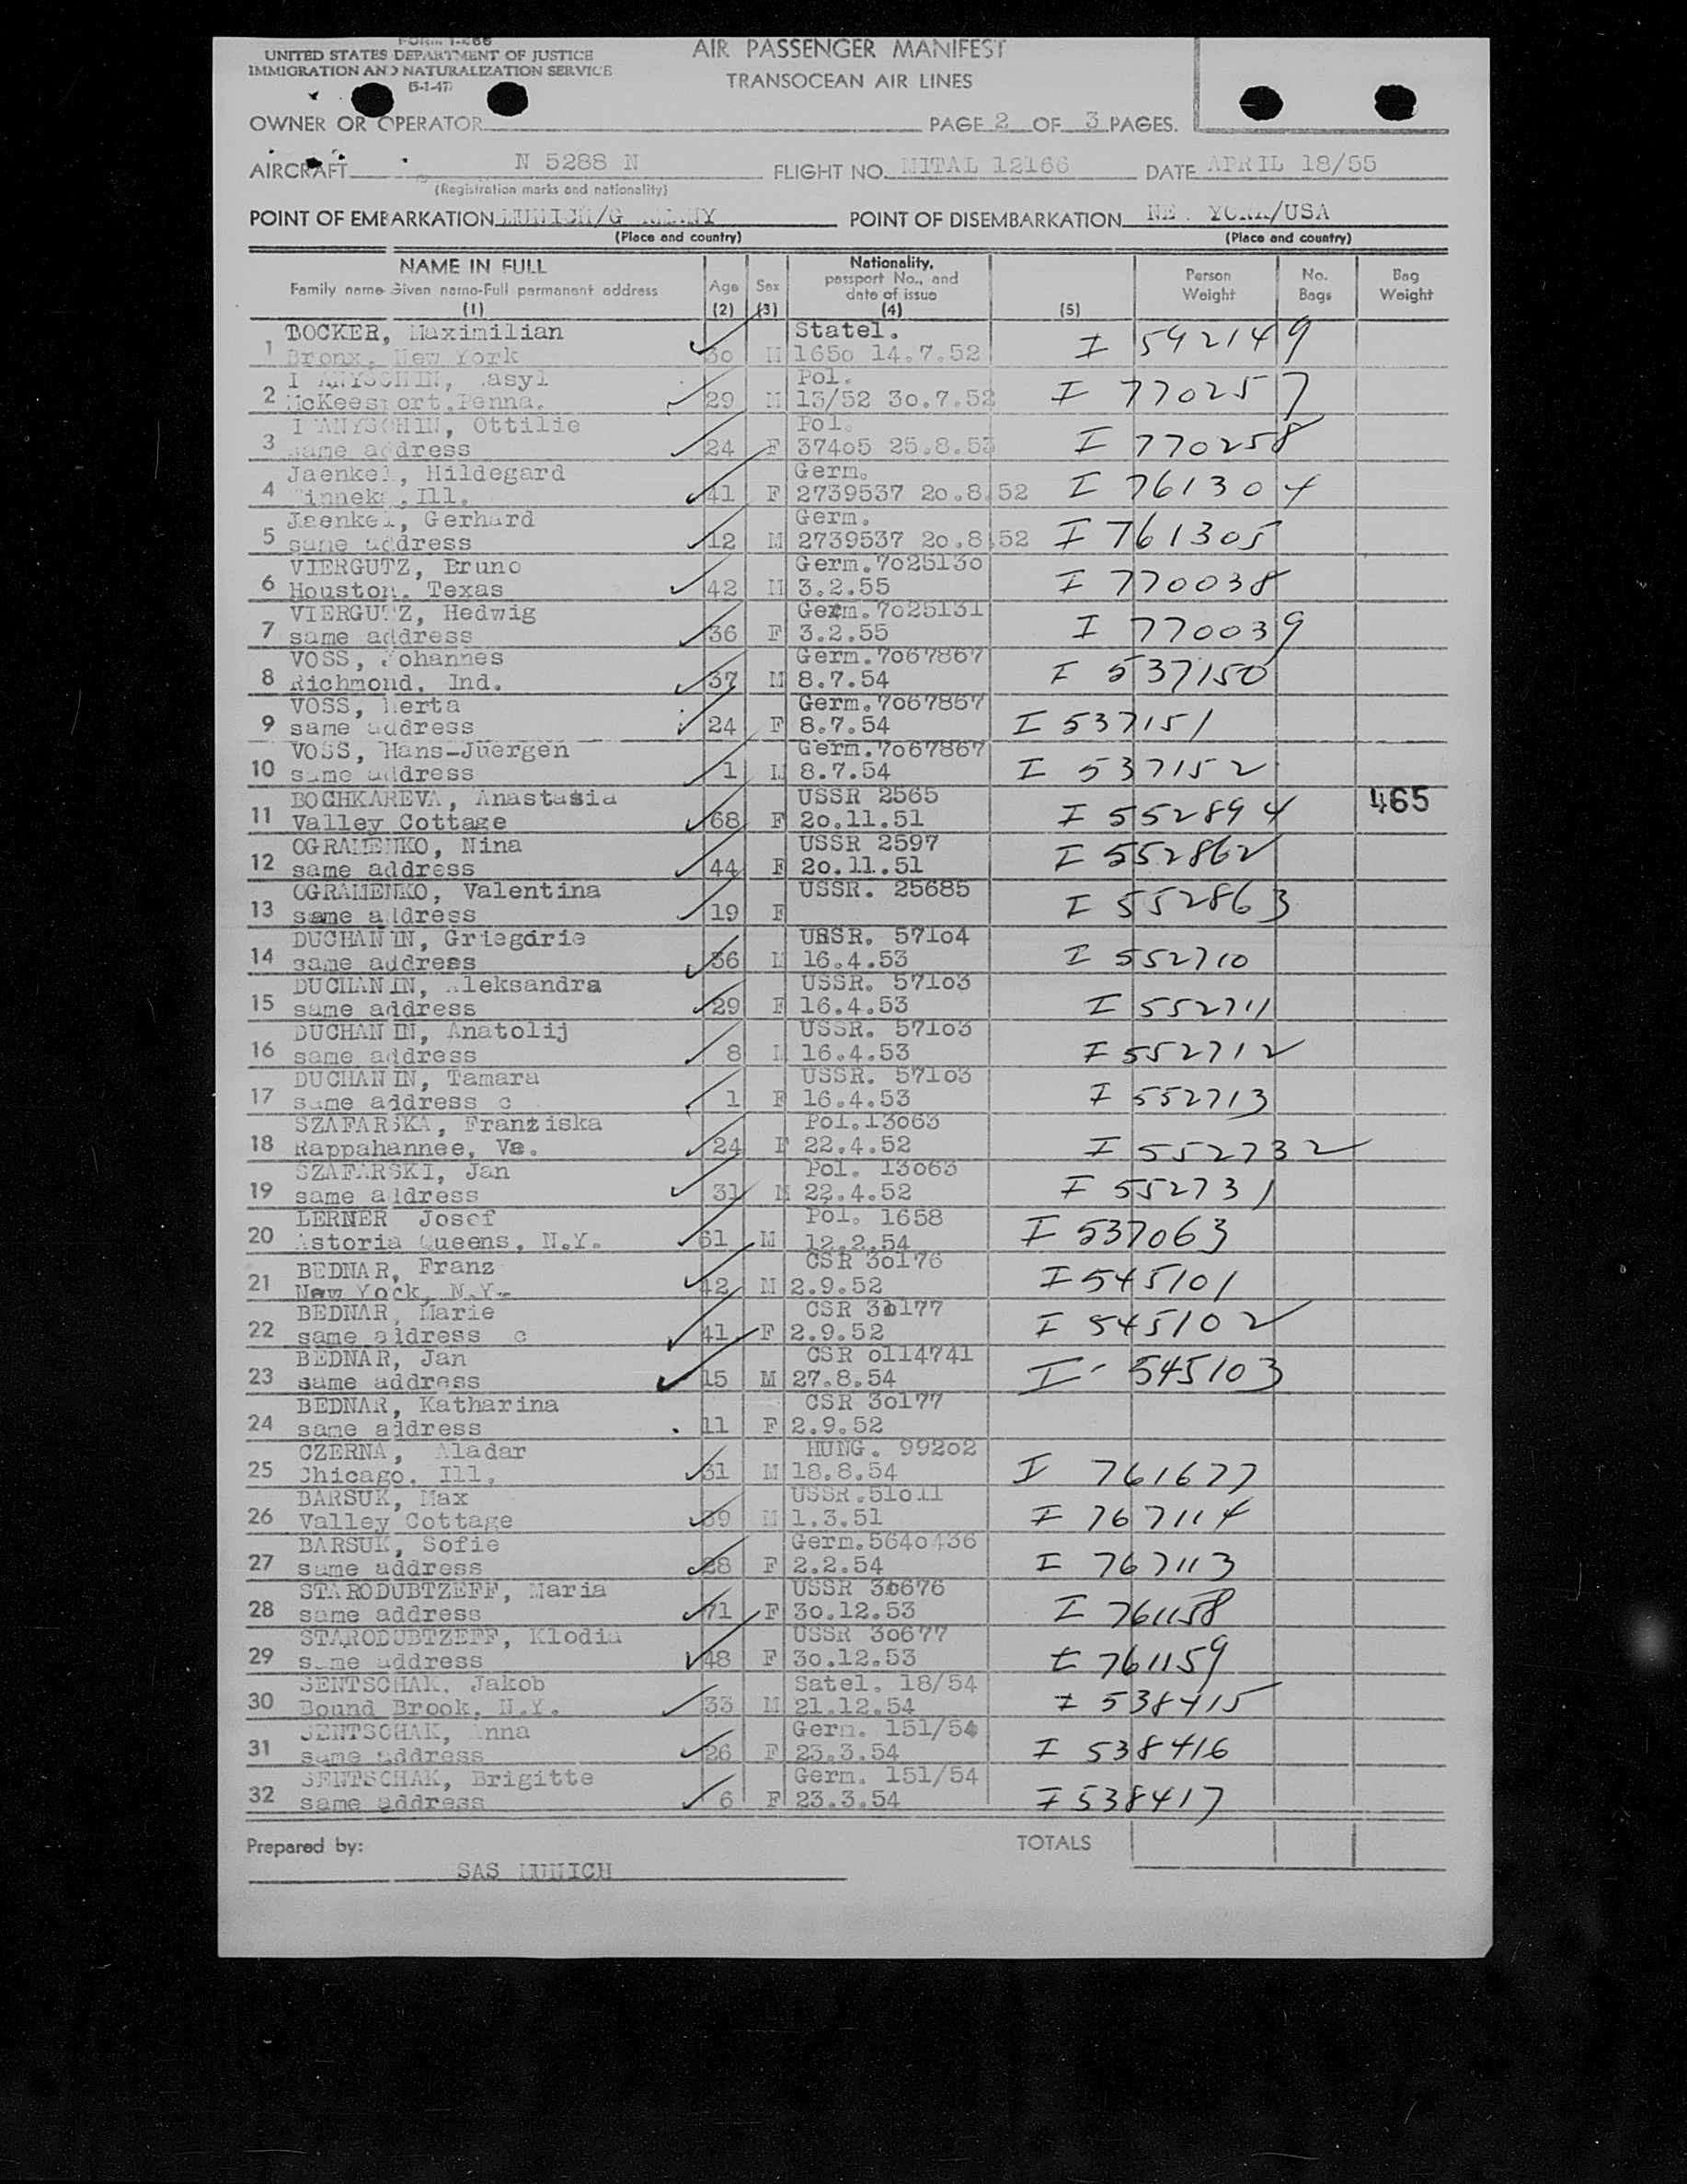 FORM I-466
UNITED STATES DEPARTMENT OF JUSTICE
IMMIGRATION AND NATURALIZATION SERVICE
(5-1-47)
AIR PASSENGER MANIFEST
TRANSOCEAN AIR LINES
OWNER OR OPERATOR PAGE 2 OF 3 PAGES.
AIRCRAFT N 5288 N FLIGHT NO. MITAL 12166 DATE APRIL 18/55
(Registration marks and nationality)
POINT OF EMBARKATION MUNICH/GERMANY POINT OF DISEMBARKATION NEW YORK/USA
(Place and country) (Place and country)
NAME IN FULL Nationality, passport No., and date of issue Person Weight No. Bags Bag Weight
Family name-Given name-Full permanent address Age Sex
(1) (2) (3) (4) (5)
BOCKER, Maximilian Statel.
1 Bronx, New York 30 M 1650 14.7.52 I 592149
Pol.
2 McKeesport.Penna. 29 M 13/52 30.7.52 I 770257
Ottilie Pol.
3 same address 24 F 37405 25.8.53 I 770258
Jaenkel, Hildegard Germ.
4 Ill. 41 F 2739537 20.8.52 I 761304
Jaenkel, Gerhard Germ.
5 same address 12 M 2739537 20.8.52 I 761305
VIERGUTZ, Bruno Germ.7025130
6 Houston. Texas 42 M 3.2.55 I 770038
VIERGUTZ, Hedwig Germ.7025131
7 same address 36 F 3.2.55 I 770039
VOSS, Johannes Germ.7067867
8 Richmond, Ind. 37 M 8.7.54 I 537150
VOSS, Herta Germ.7067867
9 same address 24 F 8.7.54 I 537151
VOSS, Hans-Juergen Germ.7067867
10 same address 1 M 8.7.54 I 537152
BOCHKAREVA, Anastasia USSR 2565 465
11 Valley Cottage 68 F 20.11.51 I 552894
OGRAMENKO, Nina USSR 2597
12 same address 44 F 20.11.51 I 552862
OGRAMENKO, Valentina USSR. 25685
13 same address 19 F I 552863
DUCHANIN, Griegorie USSR. 57104
14 same address 36 M 16.4.53 I 552710
DUCHANIN, Aleksandra USSR. 57103
15 same address 29 F 16.4.53 I 552711
DUCHANIN, Anatolij USSR. 57103
16 same address 8 M 16.4.53 I 552712
DUCHANIN, Tamara USSR. 57103
17 same address c 1 F 16.4.53 I 552713
SZAFARSKA, Franziska Pol.13063
18 Rappahannee, Va. 24 F 22.4.52 I 552732
SZAFARSKI, Jan Pol. 13063
19 same address 31 M 22.4.52 I 552731
LERNER Josef Pol. 1658
20 Astoria Queens, N.Y. 61 M 12.2.54 I 537063
BEDNAR, Franz CSR 30176
21 New York, N.Y. 42 M 2.9.52 I 545101
BEDNAR, Marie CSR 30177
22 same address c 41 F 2.9.52 I 545102
BEDNAR, Jan CSR 0114741
23 same address 15 M 27.8.54 I 545103
BEDNAR, Katharina CSR 30177
24 same address 11 F 2.9.52
CZERNA, Aladar HUNG. 99202
25 Chicago, Ill. 31 M 18.8.54 I 761677
BARSUK, Max USSR.51011
26 Valley Cottage 39 M 1.3.51 I 767114
BARSUK, Sofie Germ.5640436
27 same address 28 F 2.2.54 I 767113
STARODUBTZEFF, Maria USSR 30676
28 same address 71 F 30.12.53 I 761158
STARODUBTZEFF, Klodia USSR 30677
29 same address 48 F 30.12.53 I 761159
SENTSCHAK, Jakob Satel. 18/54
30 Bound Brook, N.Y. 33 M 21.12.54 I 538415
SENTSCHAK, Anna Germ. 151/54
31 same address 26 F 23.3.54 I 538416
SENTSCHAK, Brigitte Germ. 151/54
32 same address 6 F 23.3.54 I 538417
Prepared by: TOTALS
SAS MUNICH